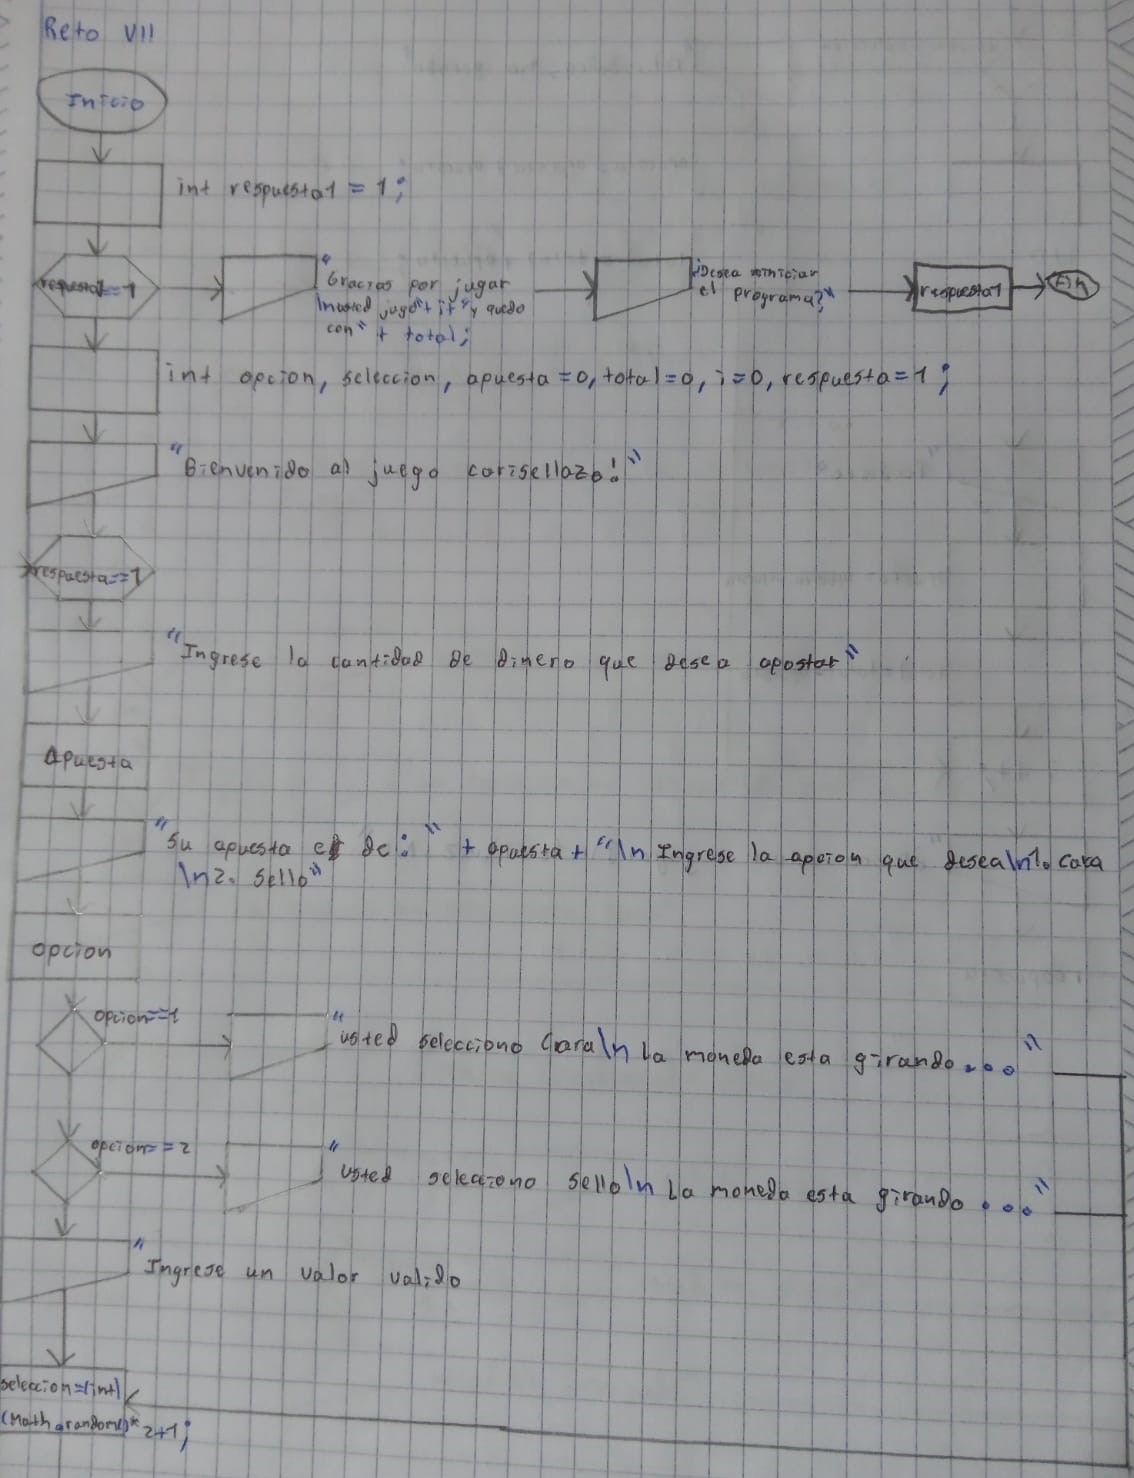 Reto VII
Inicio
int respuesta1 = 1;
respuesta1==1
"Gracias por jugar
\nusted jugo"+i+"y quedo
con" + total;
"Desea reiniciar
el programa?"
respuesta1
Fin
int opcion, seleccion, apuesta=0, total=0, i=0, respuesta=1;
"Bienvenido al juego carisellazo!"
respuesta==1
"Ingrese la cantidad de dinero que desea apostar"
Apuesta
"Su apuesta es de: " + apuesta + "\n Ingrese la apcion que desea\n1. cara
\n2. sello"
opcion
opcion==1
"usted selecciono Cara\n La moneda esta girando..."
opcion==2
"usted seleciono sello\n La moneda esta girando..."
"Ingrese un valor valido
seleccion=(int)
(Math.random()*2+1;